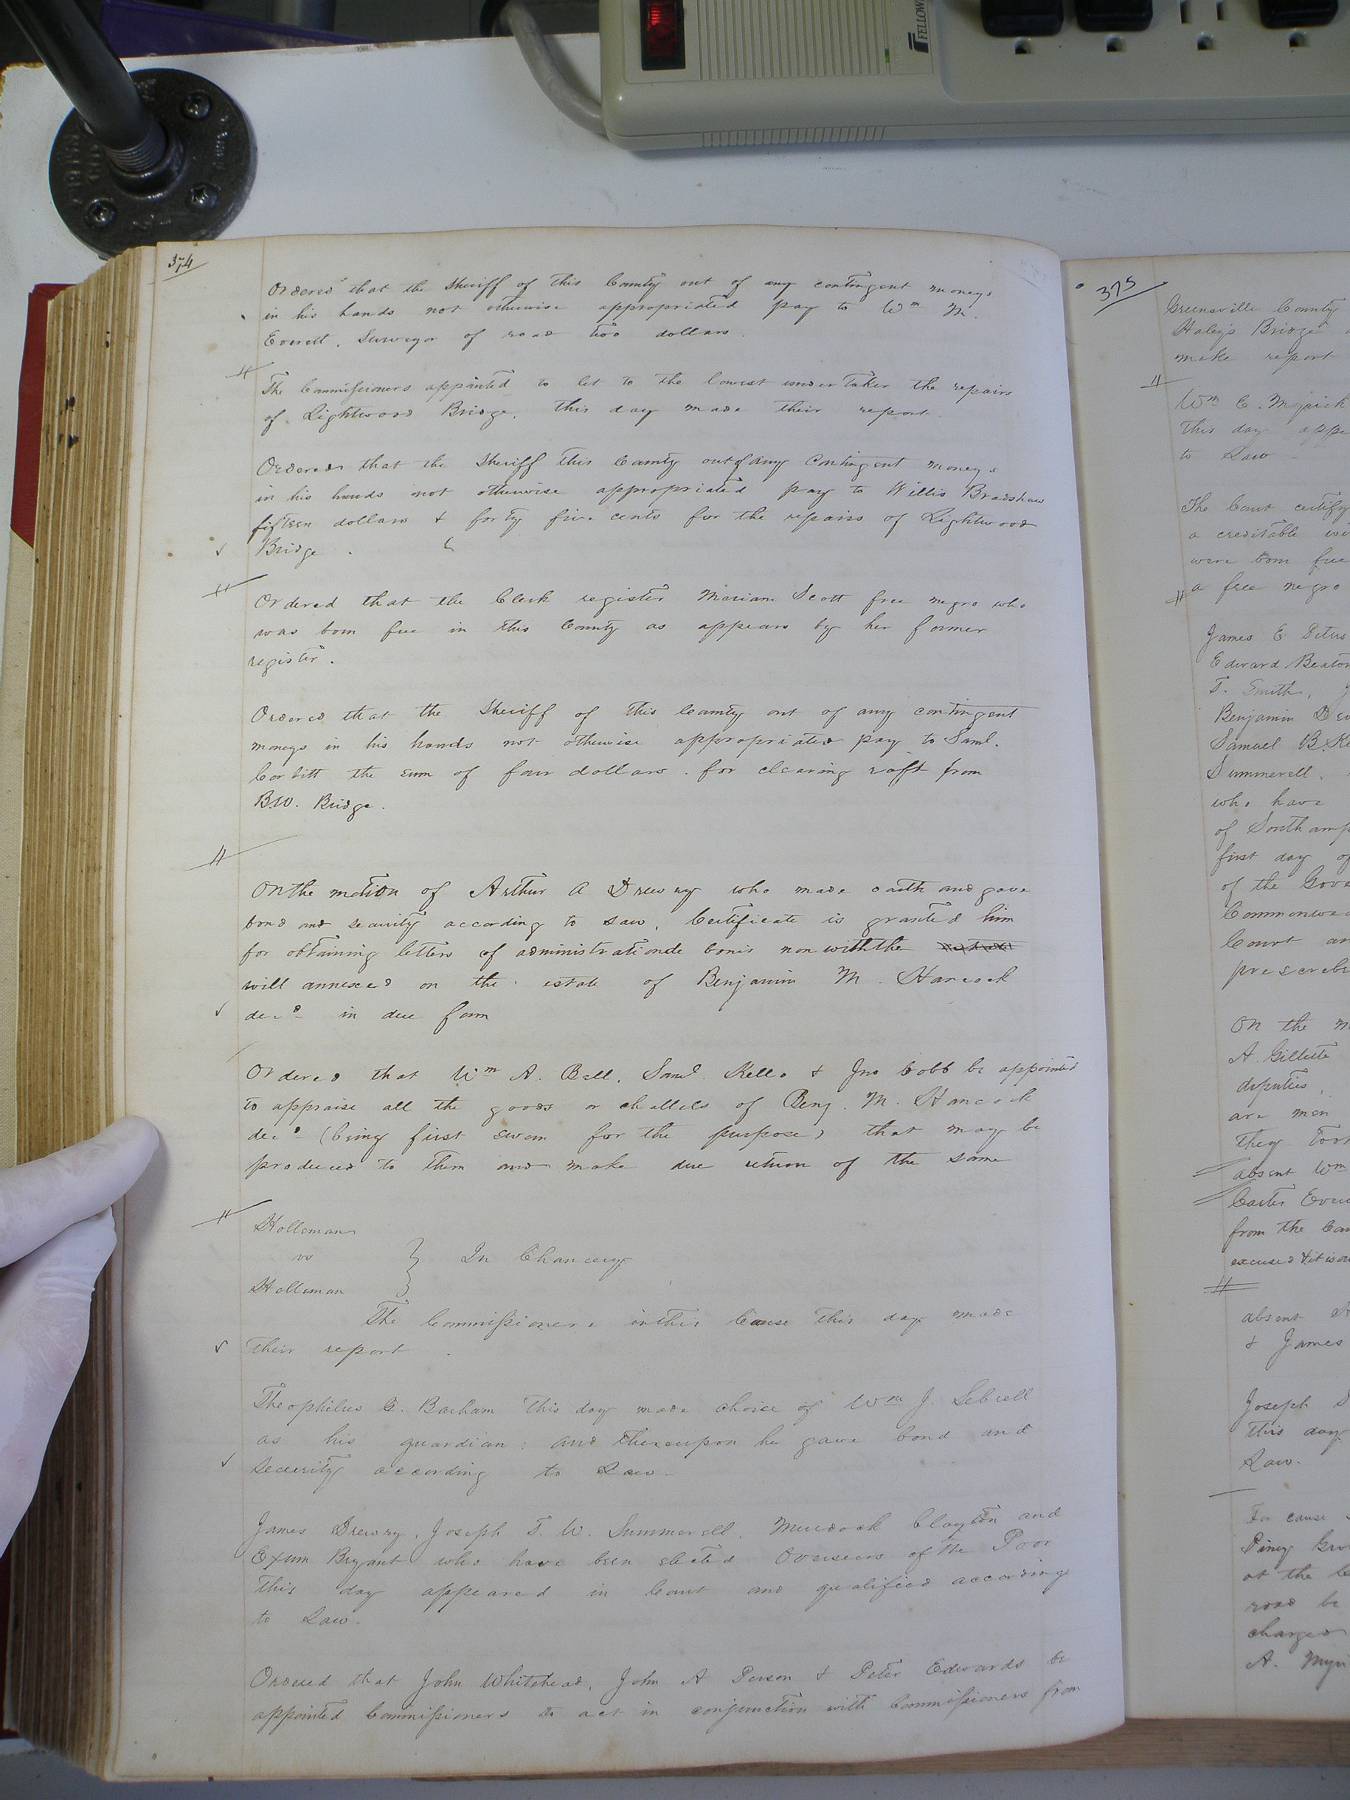 FELLOW
374
Ordered that the Sheriff of this County out of any contingent moneys
in his hands not otherwise appropriated pay to Wm M.
Everett, Surveyor of road two dollars
The Commissioners appointed to let to the lowest undertaker the repairs
of Lightwood Bridge, this day made their report.
Ordered that the Sheriff this County out of any Contingent moneys
in his hands not otherwise appropriated pay to Willis Bradshaw
fifteen dollars & forty five cents for the repairs of Lightwood
Bridge.
Ordered that the Clerk register Mariam Scott free negro who
was born free in this County as appears by her former
register.
Ordered that the Sheriff of this County out of any contingent
moneys in his hands not otherwise appropriated pay to Saml.
Corbitt the sum of four dollars. for clearing raft from
B.W. Bridge.
On the motion of Arthur A Drewry who made oath and gave
bond and security according to Law, Certificate is granted him
for obtaining letters of administration de bonis non with the
will annexed on the estate of Benjamin M. Hancock
decd in due form
Ordered that Wm A. Ball, Saml. Kello & Jno Cobb be appointed
to appraise all the goods or chattels of Benj. M. Hancock
decd (being first sworn for the purpose) that may be
produced to them and make due return of the same
Holleman
vs
Holleman
} In Chancery
The Commissioners in this Cause this day made
their report.
Theophilus G. Barham this day made choice of Wm J. Sebrell
as his guardian: and thereupon he gave bond and
security according to Law.
James Drewry, Joseph T. W. Summerell, Murdoch Clayton and
Exum Bryant who have been elected Overseers of the Poor
this day appeared in Court and qualified according
to Law.
Ordered that John Whitehead, John A Person & Peter Edwards be
appointed Commissioners to act in conjunction with Commissioners from
375
Greensville County
Haleys Bridge
make report
Wm C.
this day appe
to Law
The Court certify
a creditable
were born free
a free negro
James E
Edward Beaton
T. Smith,
Benjamin
Samuel B.
Summerell,
who have
of Southamp
first day of
of the Gove
Commonwea
Court an
prescrib
On the m
A. Gillette
deputies,
are men
they took
absent Wm
Carter
from the Cou
excused & it is
absent
& James
Joseph
this day
Law.
For cause
Piney Gro
at the
road be
charged
A.